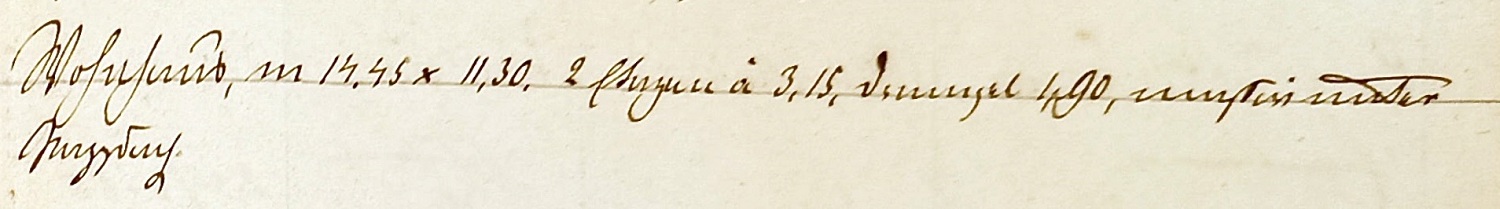 Wohnhaus, m 14.45 x 11,30. 2 Etagen à 3,15, Drempel 1,90, massiv unter
Pappdach